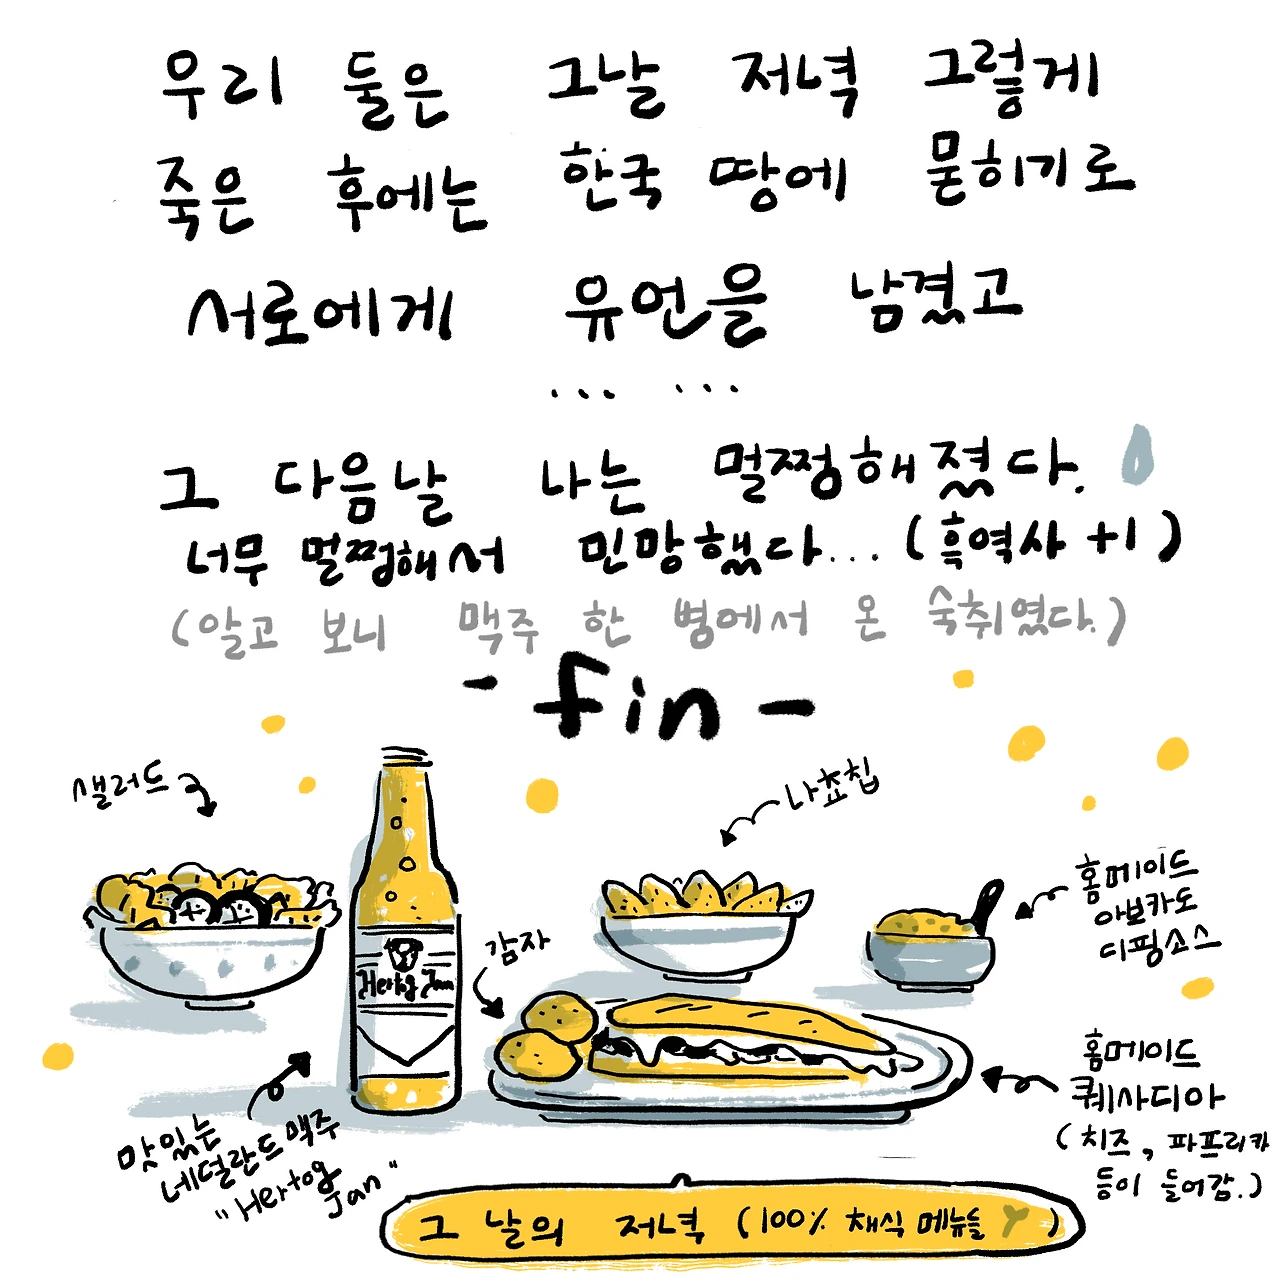 우리 둘은 그날 저녁 그렇게
죽은 후에는 한국 땅에 묻히기로
서로에게 유언을 남겼고
... ...
그 다음날 나는 멀쩡해졌다.
너무 멀쩡해서 민망했다... (흑역사 +1)
(알고 보니 맥주 한 병에서 온 숙취였다.)
- fin -
샐러드
나쵸칩
홈메이드
아보카도
디핑소스
감자
Hertog Jan
홈메이드
퀘사디아
(치즈, 파프리카
등이 들어감.)
맛있는
네덜란드 맥주
"Hertog
Jan"
그 날의 저녁 (100% 채식 메뉴들)